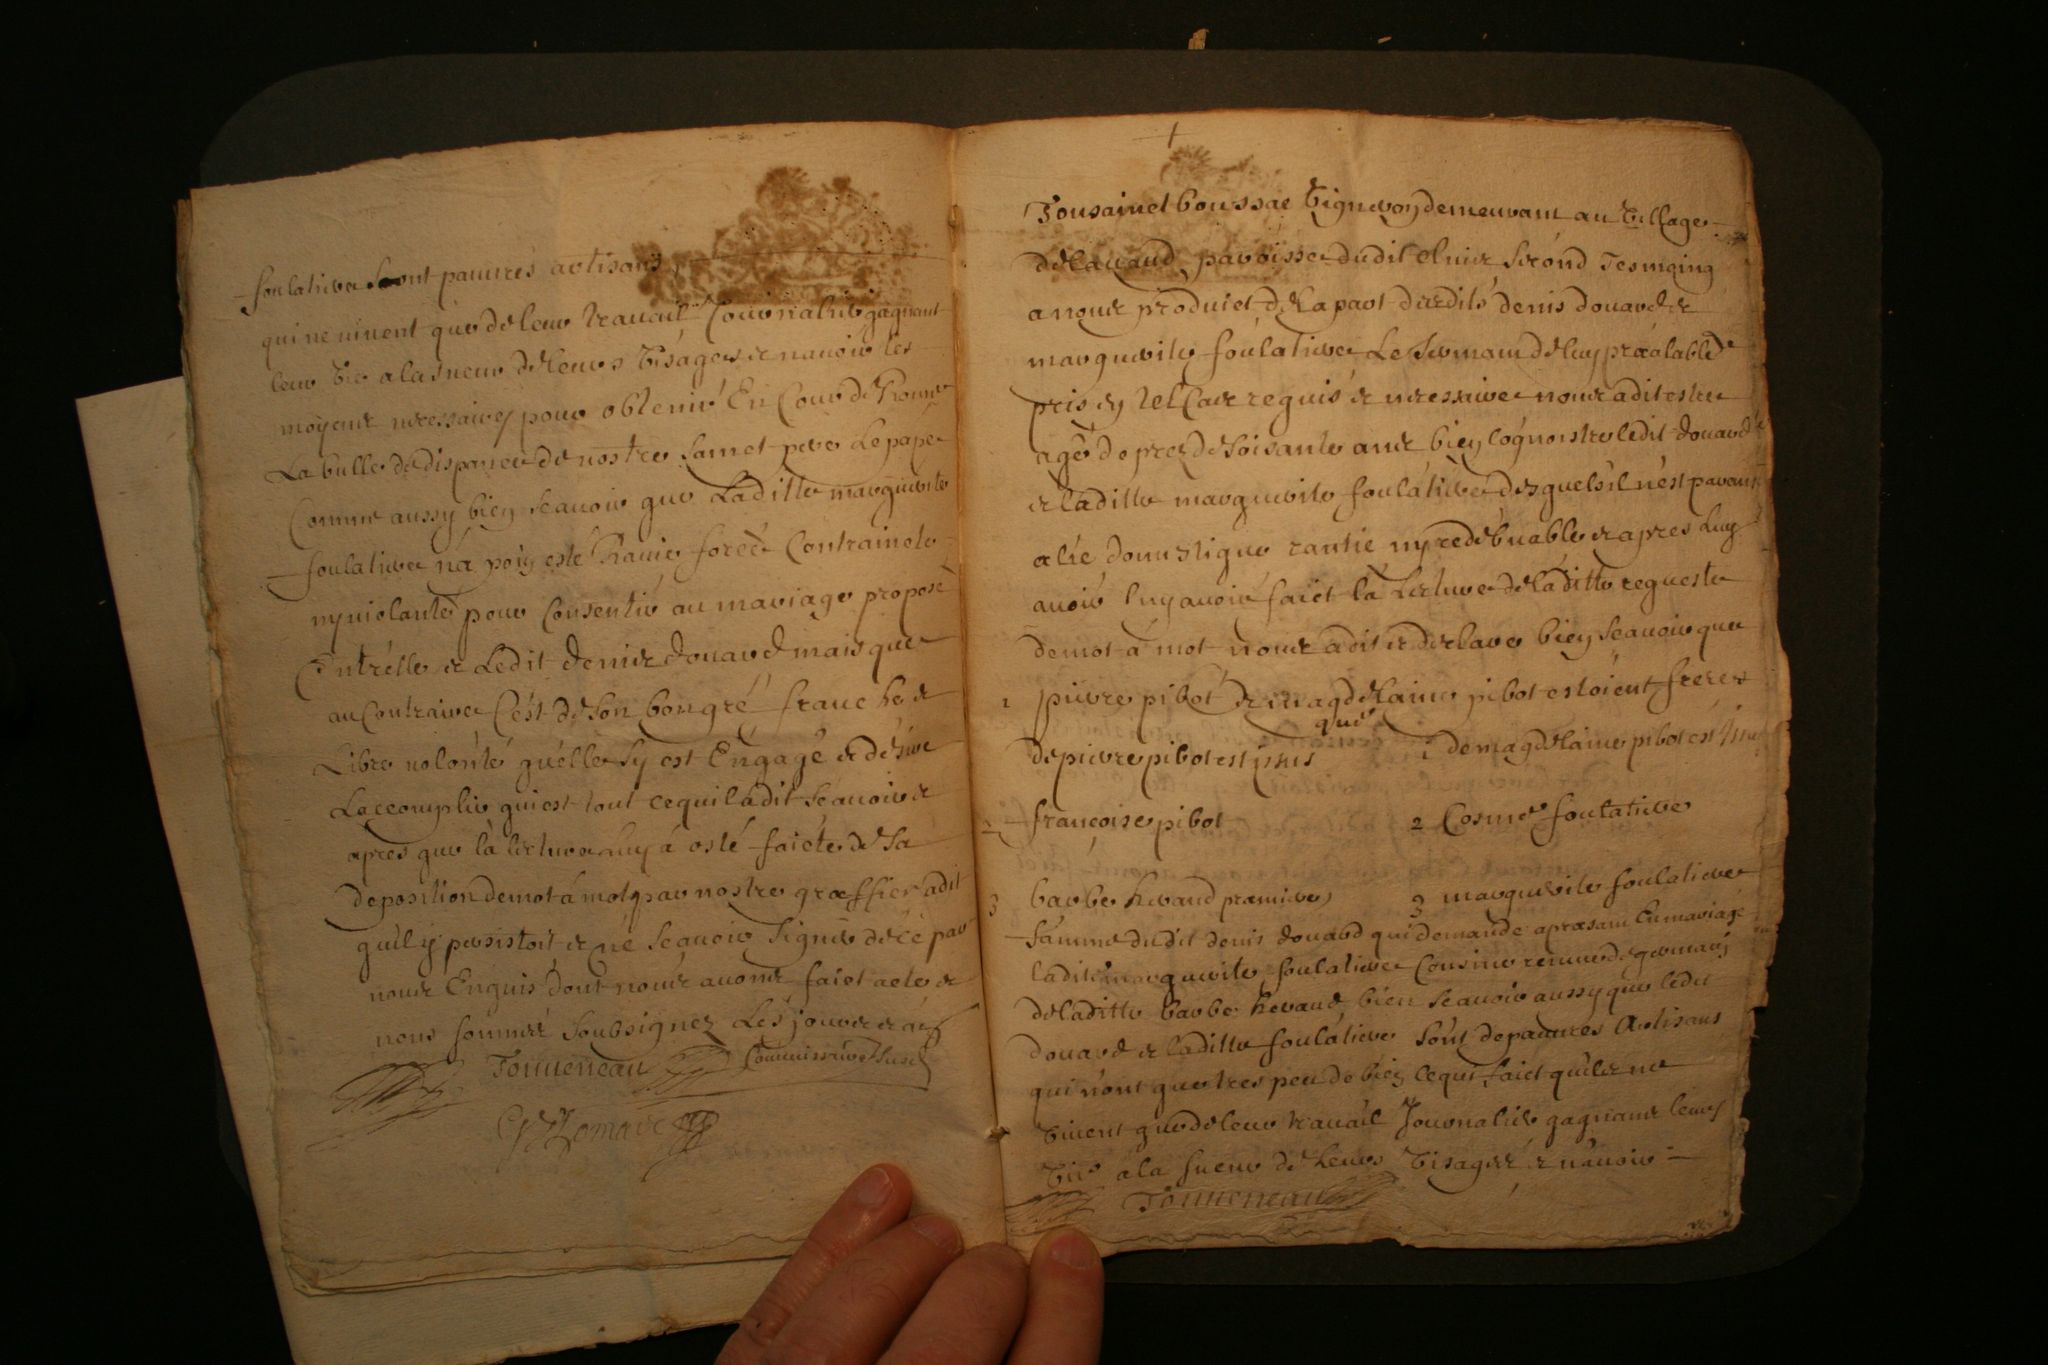 foulatiere sont pauures artisans
qui ne uiuent que de leur trauail Journalier gagnant
leur vie a la sueur de leurs visages et nauoir les
moyens necessaires pour obtenir En Cour de Rome
La bulle de dispance de nostre sainct pere Le pape
Comme aussy bien scauoir que Laditte marguerite
foulatiere na poin esté Rauie forcée Contraincte
ny uiolantè pour Consentir au mariage proposé
Entrelle et Ledit denis douard mais que
au Contraire C'est de son bon gré franche et
Libre uolonté quelle sy est Engagé et desire
Laccomplir qui est tout ce quil a dit scauoir et
apres que la lecture luy a esté faicte de sa
deposition de mot á mot par nostre græffier a dit
quil y persistoit et ne scauoir signer de ce par
nous Enquis dont nous auons faict acte et
nous sommes soubsignez Les jours et an
Tonneneau Commissaire susd
Tousainct boussac vigneron demeurant au village
de parroisse dudit second Tesmoing
a nous produict de la part desdits denis douard et
marguerite foulatiere Le serment de luy præalable
pris en tel Cas requis et necessaire nous a dit estre
agé de pres de soisante ans bien cognoistre ledit douard
et laditte marguerite foulatiere desquels il n'est parant
alié domestique ny redebuable et apres luy
auoir luy auoir faict la Lecture de laditte requeste
de mot a mot nous a dit et declare bien scauoir que
1 pierre pibot et magdelaine pibot estoient freres
que
de pierre pibot est issus 1 de magdelaine pibot est issu
2 françoise pibot 2 Cosme foulatiere
3 barbe heraud premiere 3 marguerite foulatiere
famme dudit denis douard qui demande apræsant En mariage
ladite marguerite foulatiere Cousine remuée de germain
de laditte barbe heraud bien scauoir aussy que ledit
douard et laditte foulatiere sont de pauures Artisans
qui n'ont que tres peu de bien ce qui faict quils ne
viuent que de leur trauail Journalier gagnans leurs
vie a la sueur de leurs visages et n'auoir
Tonneneau